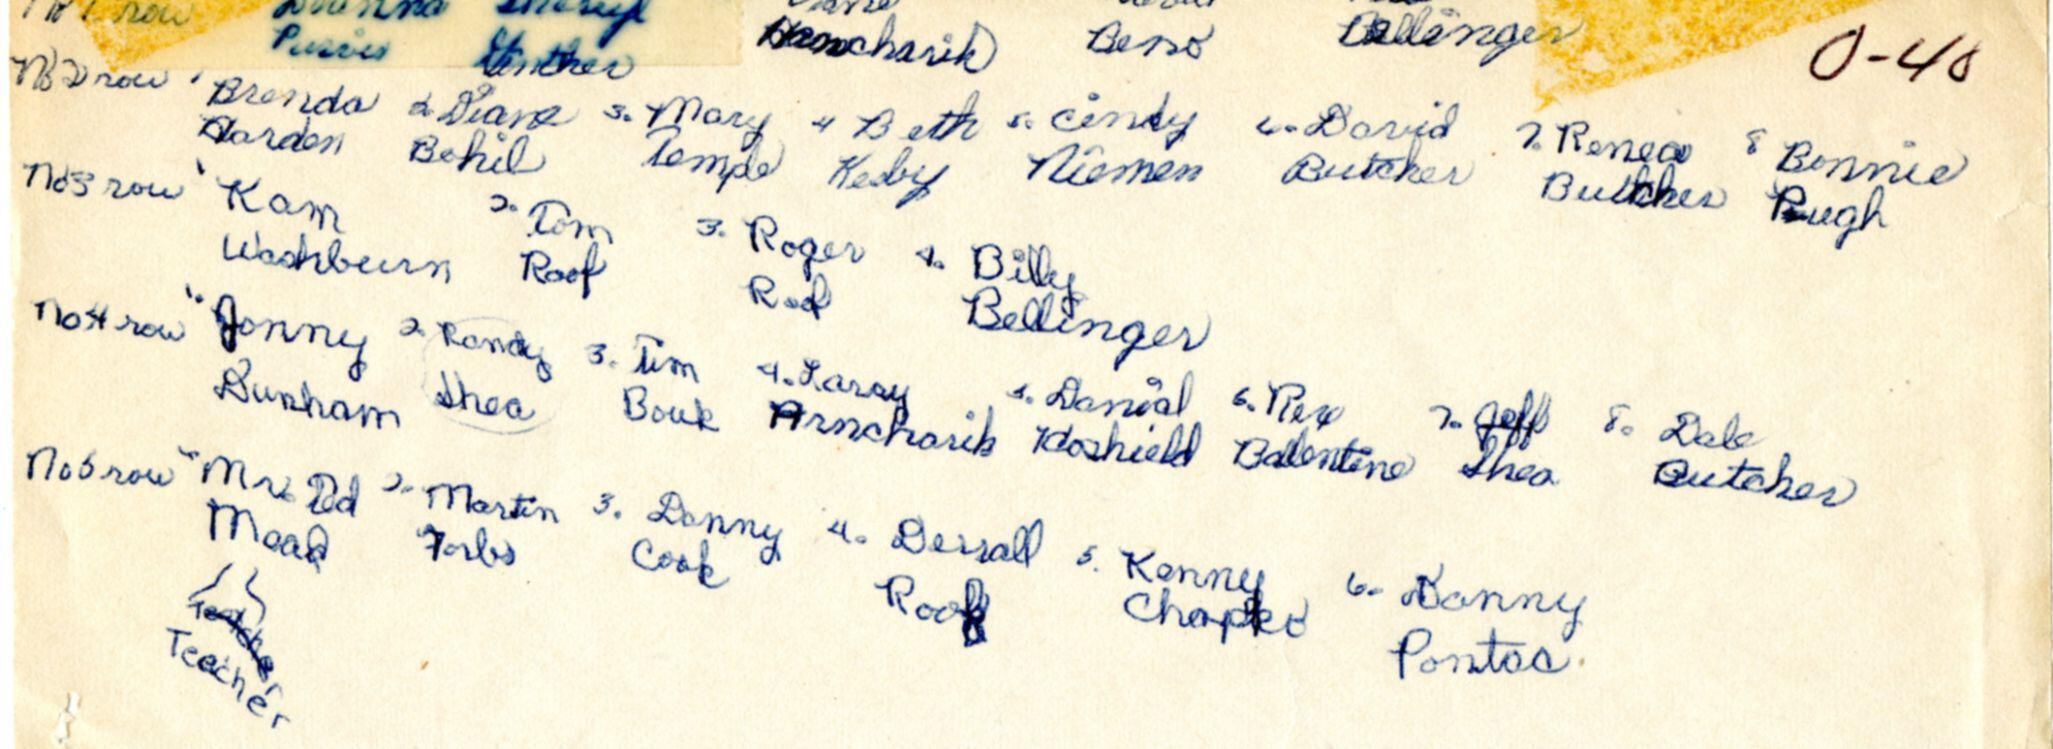 No 1 row Dianna Sheryl
Purvis Beno Bellinger
O-40
No 2 row 1. Brenda 2. Diane 3. Mary 4 Beth 5. Cindy 6. David 7. Renea 8 Bonnie
Harden Bohil Temple Kesby Niemen Butcher Butcher Pugh
No 3 row 1. Kam 2. Tom 3. Roger 4. Billy
Washburn Roof Roof Bellinger
No 4 row 1. Jonny 2. Randy 3. Tim 4. Laray 5. Danial 6. Rex 7. Jeff 8. Dale
Dunham Shea Bouk Arncharik Ballentine Shea Butcher
No 5 row 1. Mr. Ted 2. Martin 3. Danny 4. Derrall 5. Kenny 6. Danny
Mead Forbs Cook Roof Chapko Pontac.
Teacher
Teacher